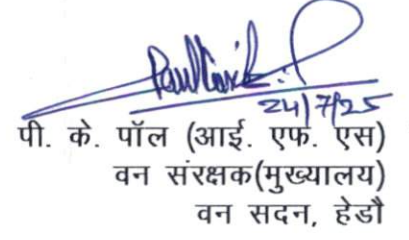 24/7/25
पी. के. पॉल (आई. एफ. एस)
वन संरक्षक(मुख्यालय)
वन सदन, हेडौ